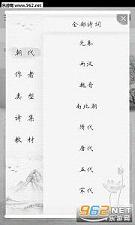 全部诗词
朝代
作者
类型
诗集
教材
先秦
两汉
魏晋
南北朝
隋代
唐代
五代
宋代
www.962.net
962
.NET
乐游网